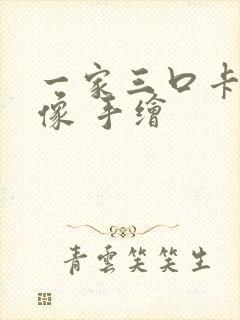 一家三口卡
像 手繪
青雲笑笑生